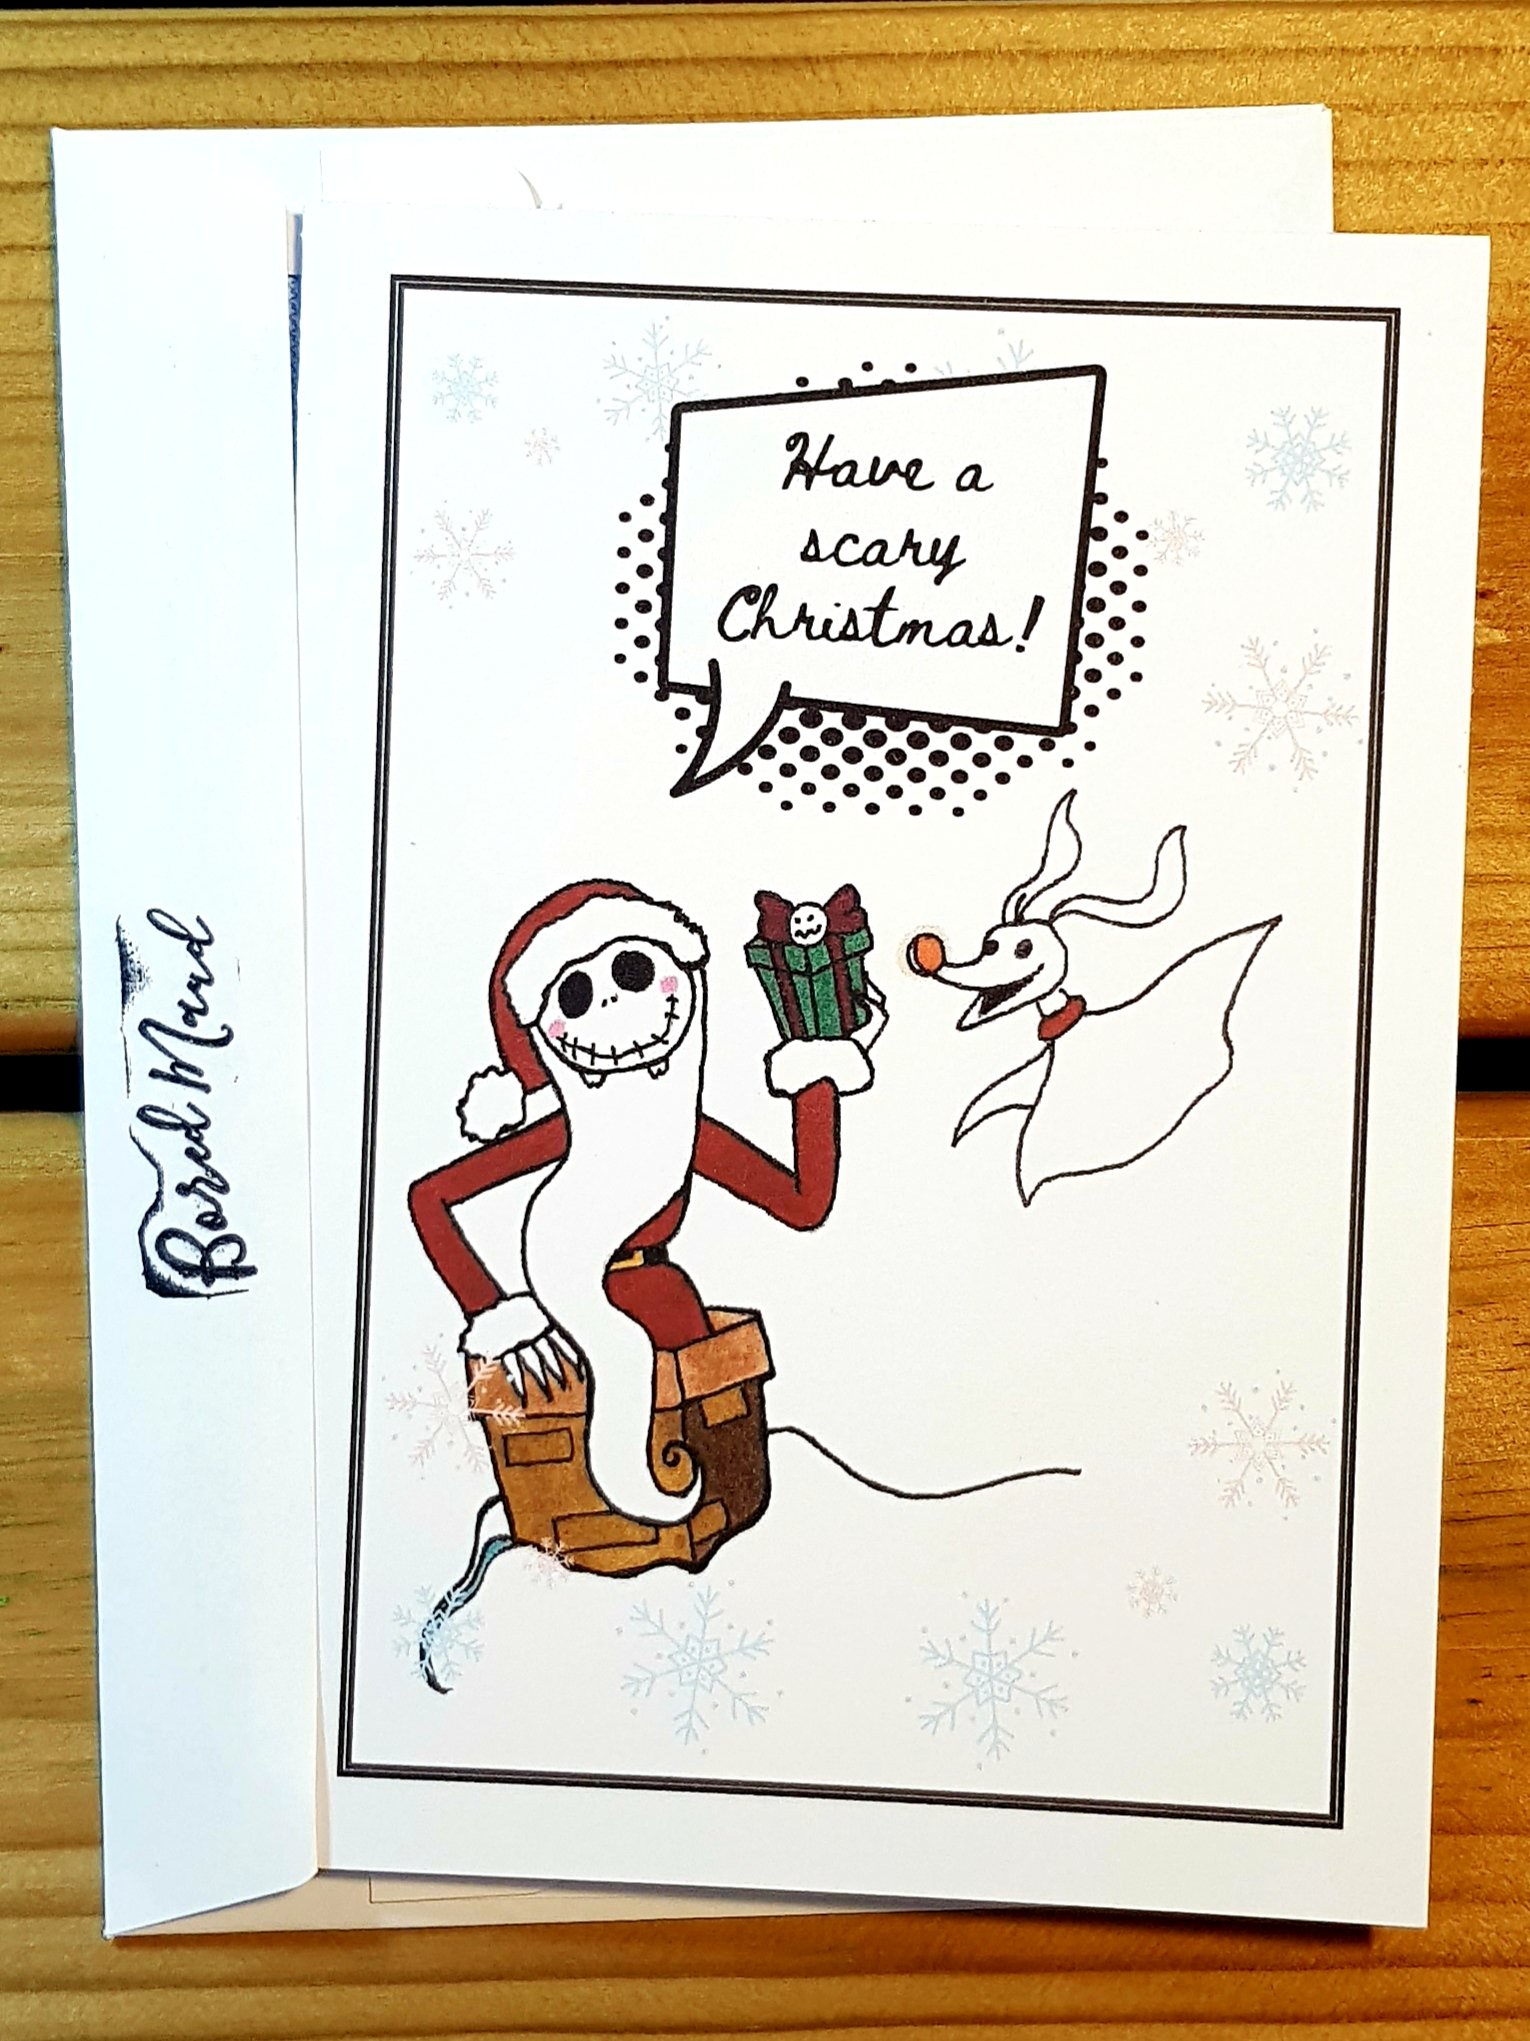 Have a
scary
Christmas!
Bored Maud